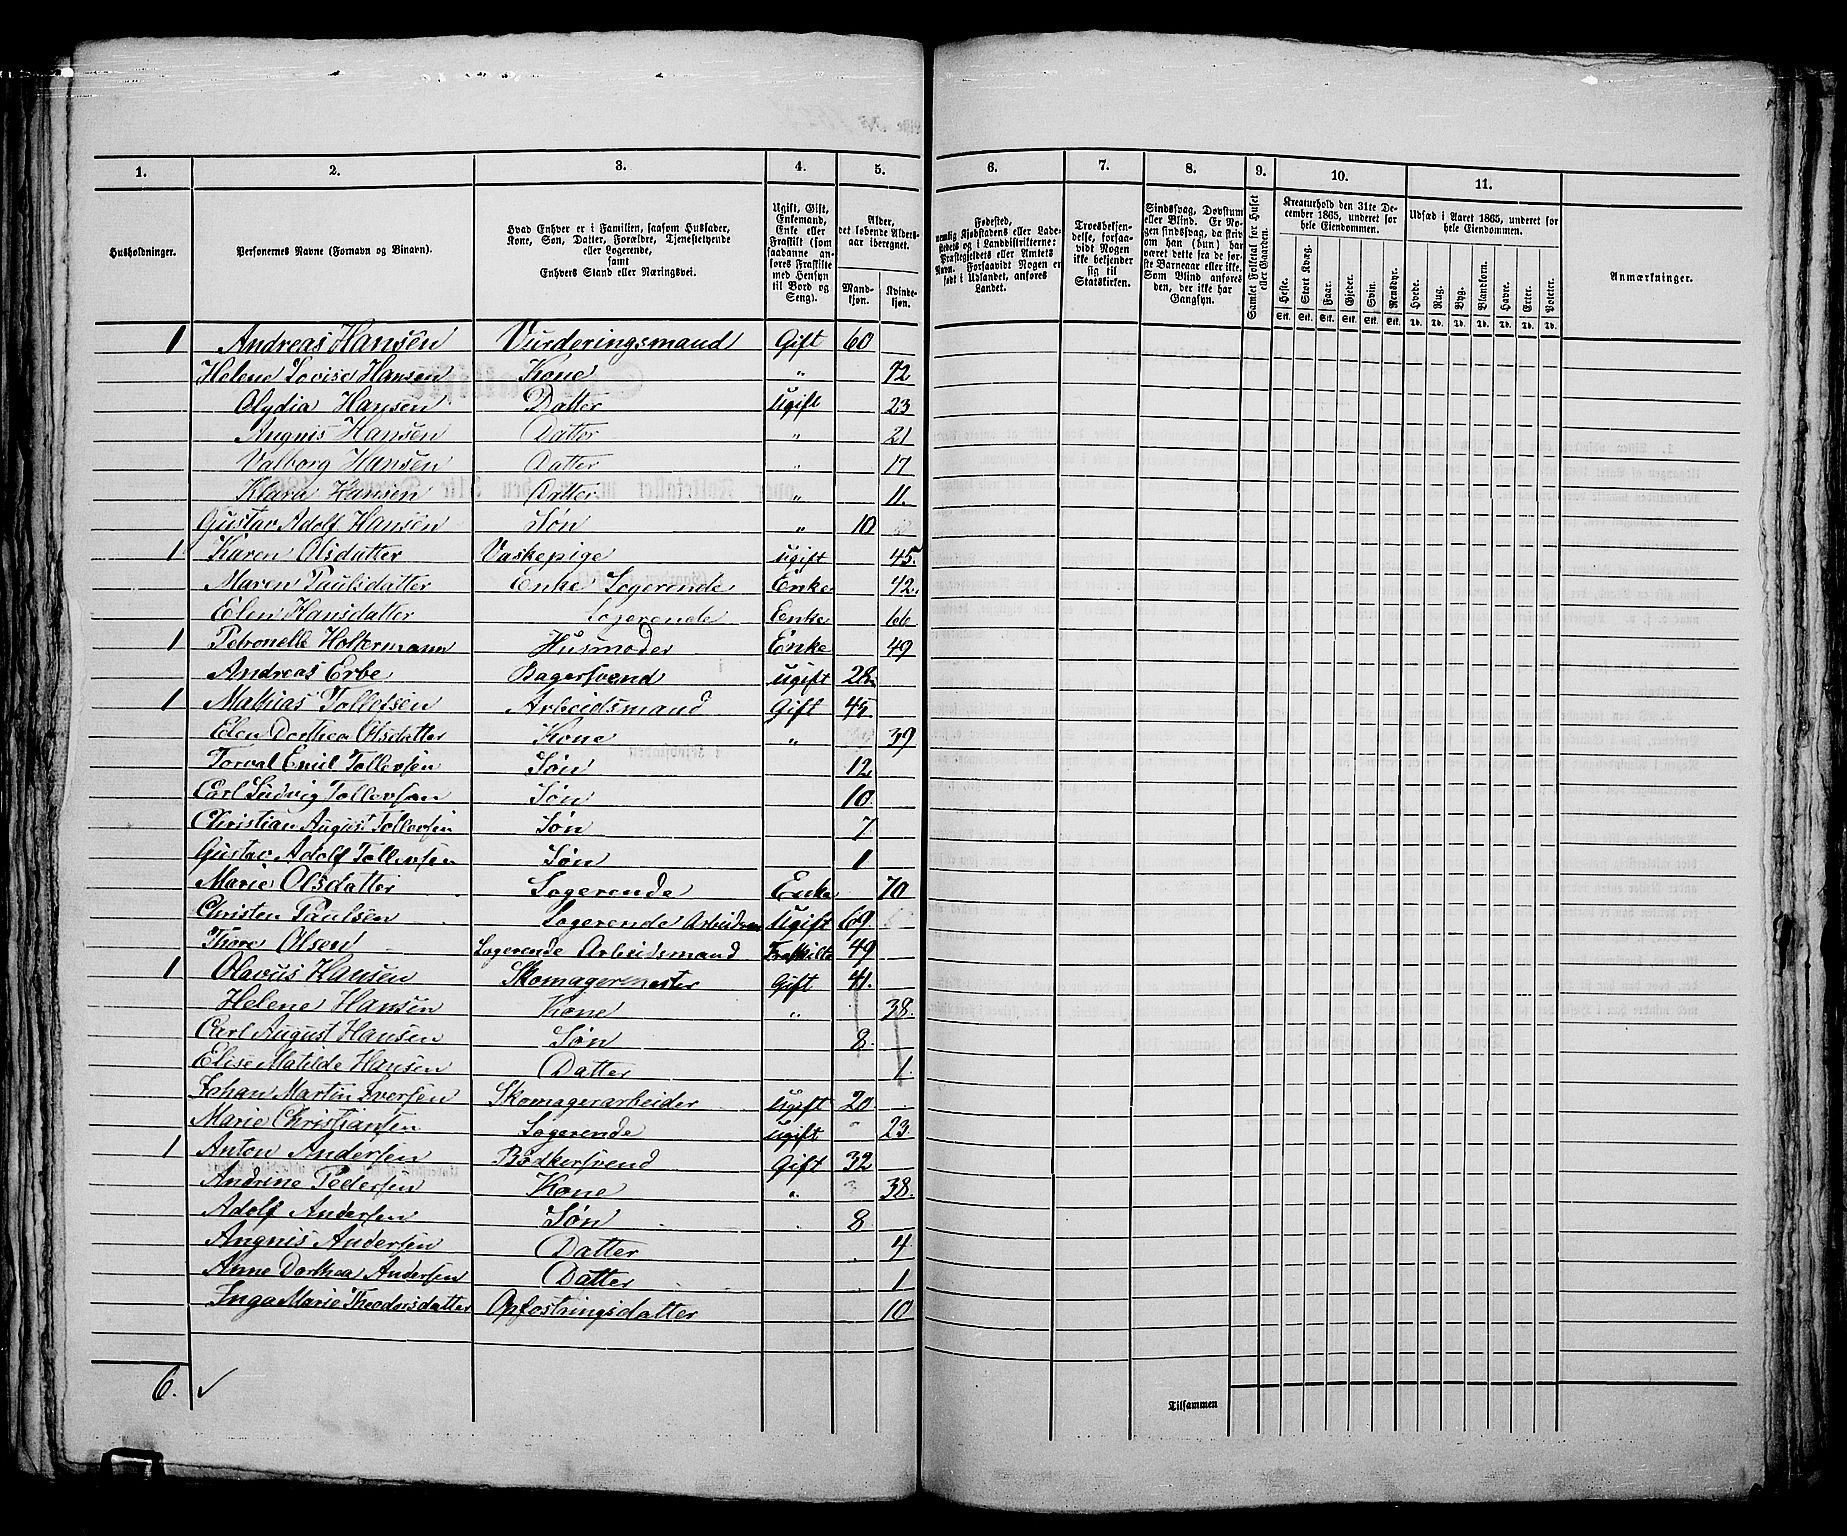 1. 2. 3. 4. 5. 6. 7. 8. 9. 10. 11.
Husholdninger.
Personernes Navne (Fornavn og Binavn).
Hvad Enhver er i Familien, saasom Husfader, Kone, Søn, Datter, Forældre, Tjenestetyende eller Logerende, samt Enhvers Stand eller Næringsvei.
Ugift, Gift, Enkemand, Enke eller Fraskilt (som saadanne anføres Fraskilte med Hensyn til Bord og Seng).
Alder, det løbende Aldersaar iberegnet.
Mandkjøn. Kvindekjøn.
Fødested, nemlig Kjøbstadens eller Ladestedets og i Landdistrikterne: Præstegjeldets eller Amtets Navn. Forsaavidt Nogen er født i Udlandet, anføres Landet.
Troesbekjendelse, forsaavidt Nogen ikke bekjender sig til Statskirken.
Sindssvag, Døvstum eller Blind. Er Nogen sindssvag, da skriv om han (hun) har været dette fra de første Barneaar eller ikke. Som Blind anføres den, der ikke har Gangsyn.
Samlet Folketal for Huset eller Gaarden.
Kreaturhold den 31te December 1865, underet for hele Eiendommen.
Heste. Stort Kvæg. Faar. Gjeder. Svin. Rensdyr.
Stk. Stk. Stk. Stk. Stk. Stk.
Udsæd i Aaret 1865, underet for hele Eiendommen.
Hvede. Rug. Byg. Blandkorn. Havre. Erter. Poteter.
Td. Td. Td. Td. Td. Td. Td.
Anmærkninger.
1 Andreas Hansen Vurderingsmand Gift 60
Helene Lovise Hansen Kone " 42
Olydia Hansen Datter ugift 23
Angnis Hansen Datter " 21
Valborg Hansen Datter " 17
Klara Hansen Datter " 11.
Gustav Adolf Hansen Søn " 10
1 Karen Olsdatter Vaskepige ugift 45.
Maren Paulsdatter Enke Logerende Enke 42.
Elen Hansdatter Logerende Eenke 66
1 Petronelle Holtermann Husmoder Enke 49
Andreas Erbe Bagersvend ugift 28.
1 Mathias Tollefsen Arbeidsmand Gift 45.
Elen Dorthea Olsdatter Kone " 39
Torval Emil Tollevsen Søn 12
Carl Ludvig Tollevsen Søn 10.
Christian August Tollevsen Søn 7.
Gustav Adolf Tollevsen Søn 1
Marie Olsdatter Logerende Enke 70
Christen Paulsen Logerende Arbeidsm Ugift 69.
Thore Olsen Logerende Arbeidsmand Fraskilte 49
1 Olavus Hansen Skomagermester Gift 41.
Helene Hansen Kone " 38.
Carl August Hansen Søn 8.
Elise Matilde Hansen Datter 1.
Johan Martin Iversen Skomagerarbeider ugift 20.
Marie Christiansen Logerende ugift 23.
1 Anton Andersen Bødkersvend Gift 32
Andrine Pedersen Kone " 38.
Adolf Andersen Søn 8
Angnis Andersen Datter 4
Anne Dorthea Andersen Datter 1
Inga Marie Theodorsdatter Opfostringsdatter 10
6. ✓
Tilsammen